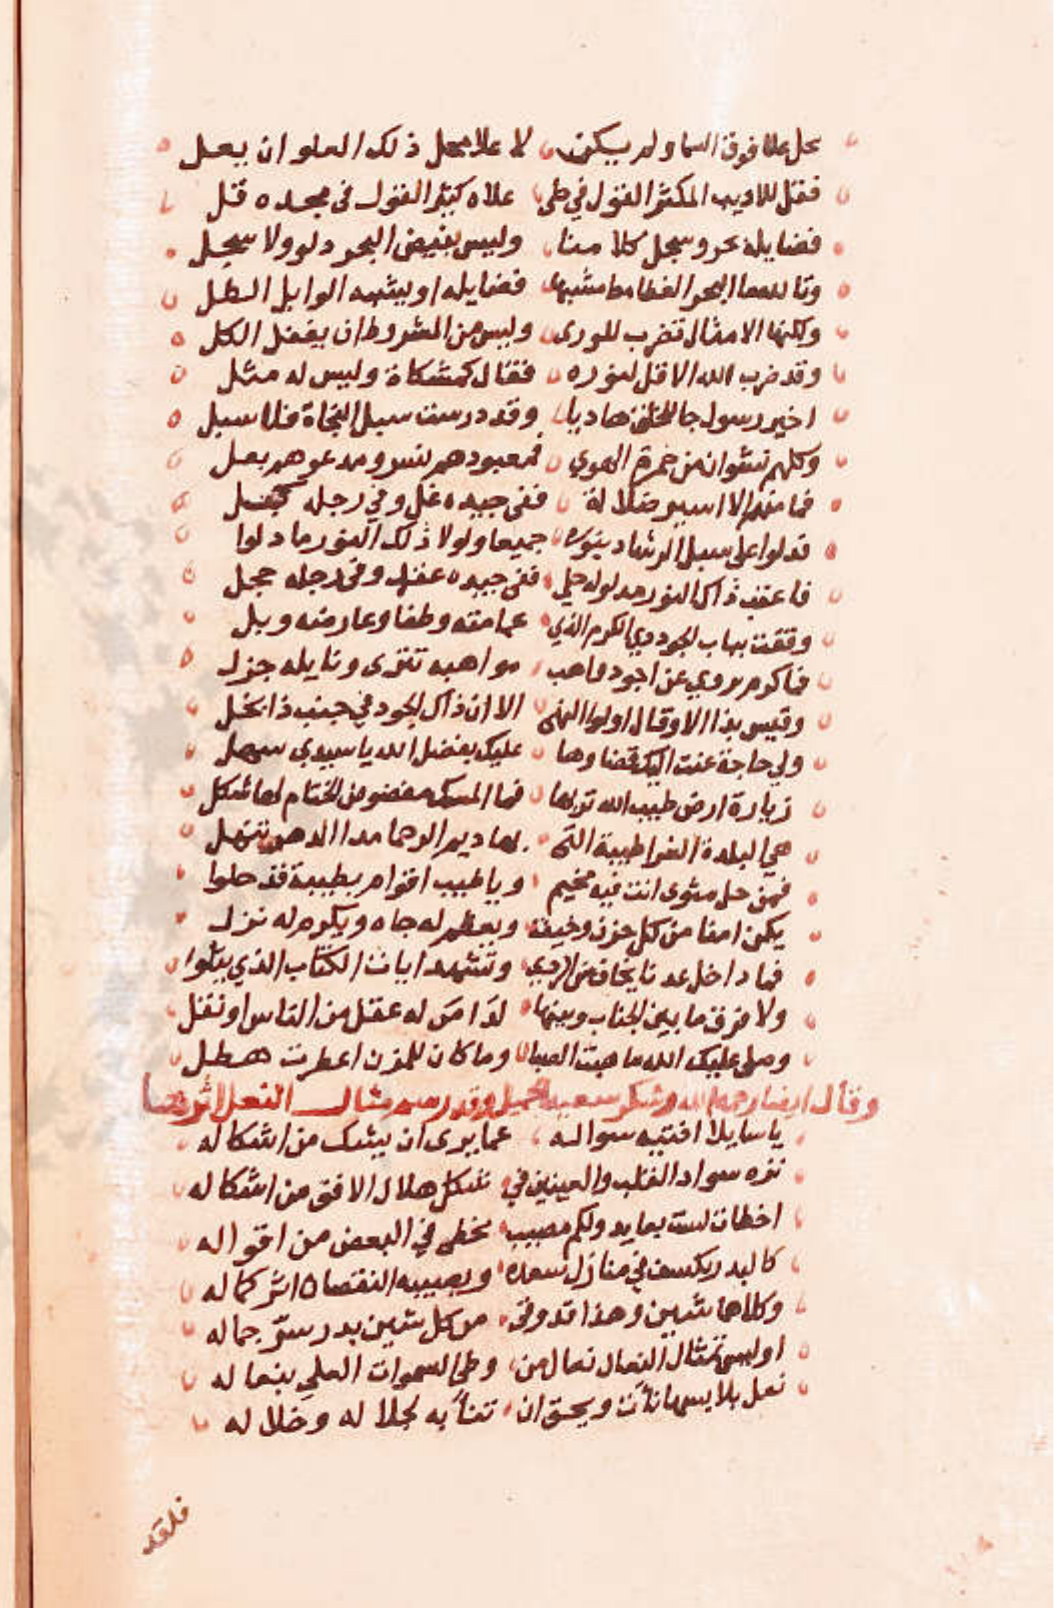 محل علا فوق السما ولم يكن لا علا محل ذلك العلو ان يعل
فقل للاديب المكثر القول في طي علاه كثير القول في مجده قل
فضايله بحر وسجل كلامنا وليس بغيض البحر دلو ولا سجل
البحر الغطامط مشبها فضايله او يشبه الوابل الطل
ولكنها الامثال تضرب للورى وليس من المشروط ان يفضل الكل
وقد ضرب الله الاقل لنوره فقال كمشكاة وليس له مثل
اخير رسول جا للخلق هاديا وقد درست سبل النجاة فلا سبل
وكلهم نشوان من خمرة الهوي فمعبودهم نسر ومدعوهم بعل
فما منهم الا اسير ضلالة ففي جيده غل وفي رجله كبل
قد لوا على سبل الرشاد بنوره جميعا ولولا ذلك النور ما دلوا
ذاك النور ففي جيده عقل وفي رجله حجل
وقفت بباب الجود ذي الكرم الذي غمامته وطفا وعارضه وبل
فاكرم من اجود واهب مواهبه تترى ونايله جزل
وقيس بذا الا وقال اولوا النهى الا ان ذاك الجود في جنب ذا بخل
ولي حاجة عنت اليك قضاوها عليك بفضل الله يا سيدي سهل
زيارة ارض طيب الله تربها فما المسك مفضوض الختام لها شكل
هي البلدة الغرا طيبة التي بها ديم الرحما مدا الدهر تنهل
فمن حل مثوى انت فيه مخيم ويا طيب اقوام بطيبة قد حلوا
يكن امنا من كل حزن وخيفة ويعظم له جاه ويكرم له نزل
فما داخل عدنا يخاف من الردي وتشهد ايات الكتاب الذي يتلوا
ولا فرق ما بين الجناب وبينها لدا من له عقل من الناس او نقل
وصلى عليك الله ما هبت الصبا وما كان للمزن هطل
وقال ايضا رحمه الله وشكر سعيه الجميل وقد رسم مثال النعل اثرها
يا سايلا افتيه سواله عما يرى ان يشك من اشكاله
نزه سواد القلب والعينين في شكل هلال الافق من اشكاله
اخطات لست بعايد ولكم مصيب يخطى في البعض من اقواله
كالبدر يكسف في منازل سعده ويصيبه النقصان اثر كماله
وكلاهما شين وهذا قد وقى من كل شين بدر جماله
اوليس تمثال النعال نعال من وطى السموات العلي بنعاله
نعل بلابسها نأت ويحق ان تنأ به لجلاله وخلاله
فلقد